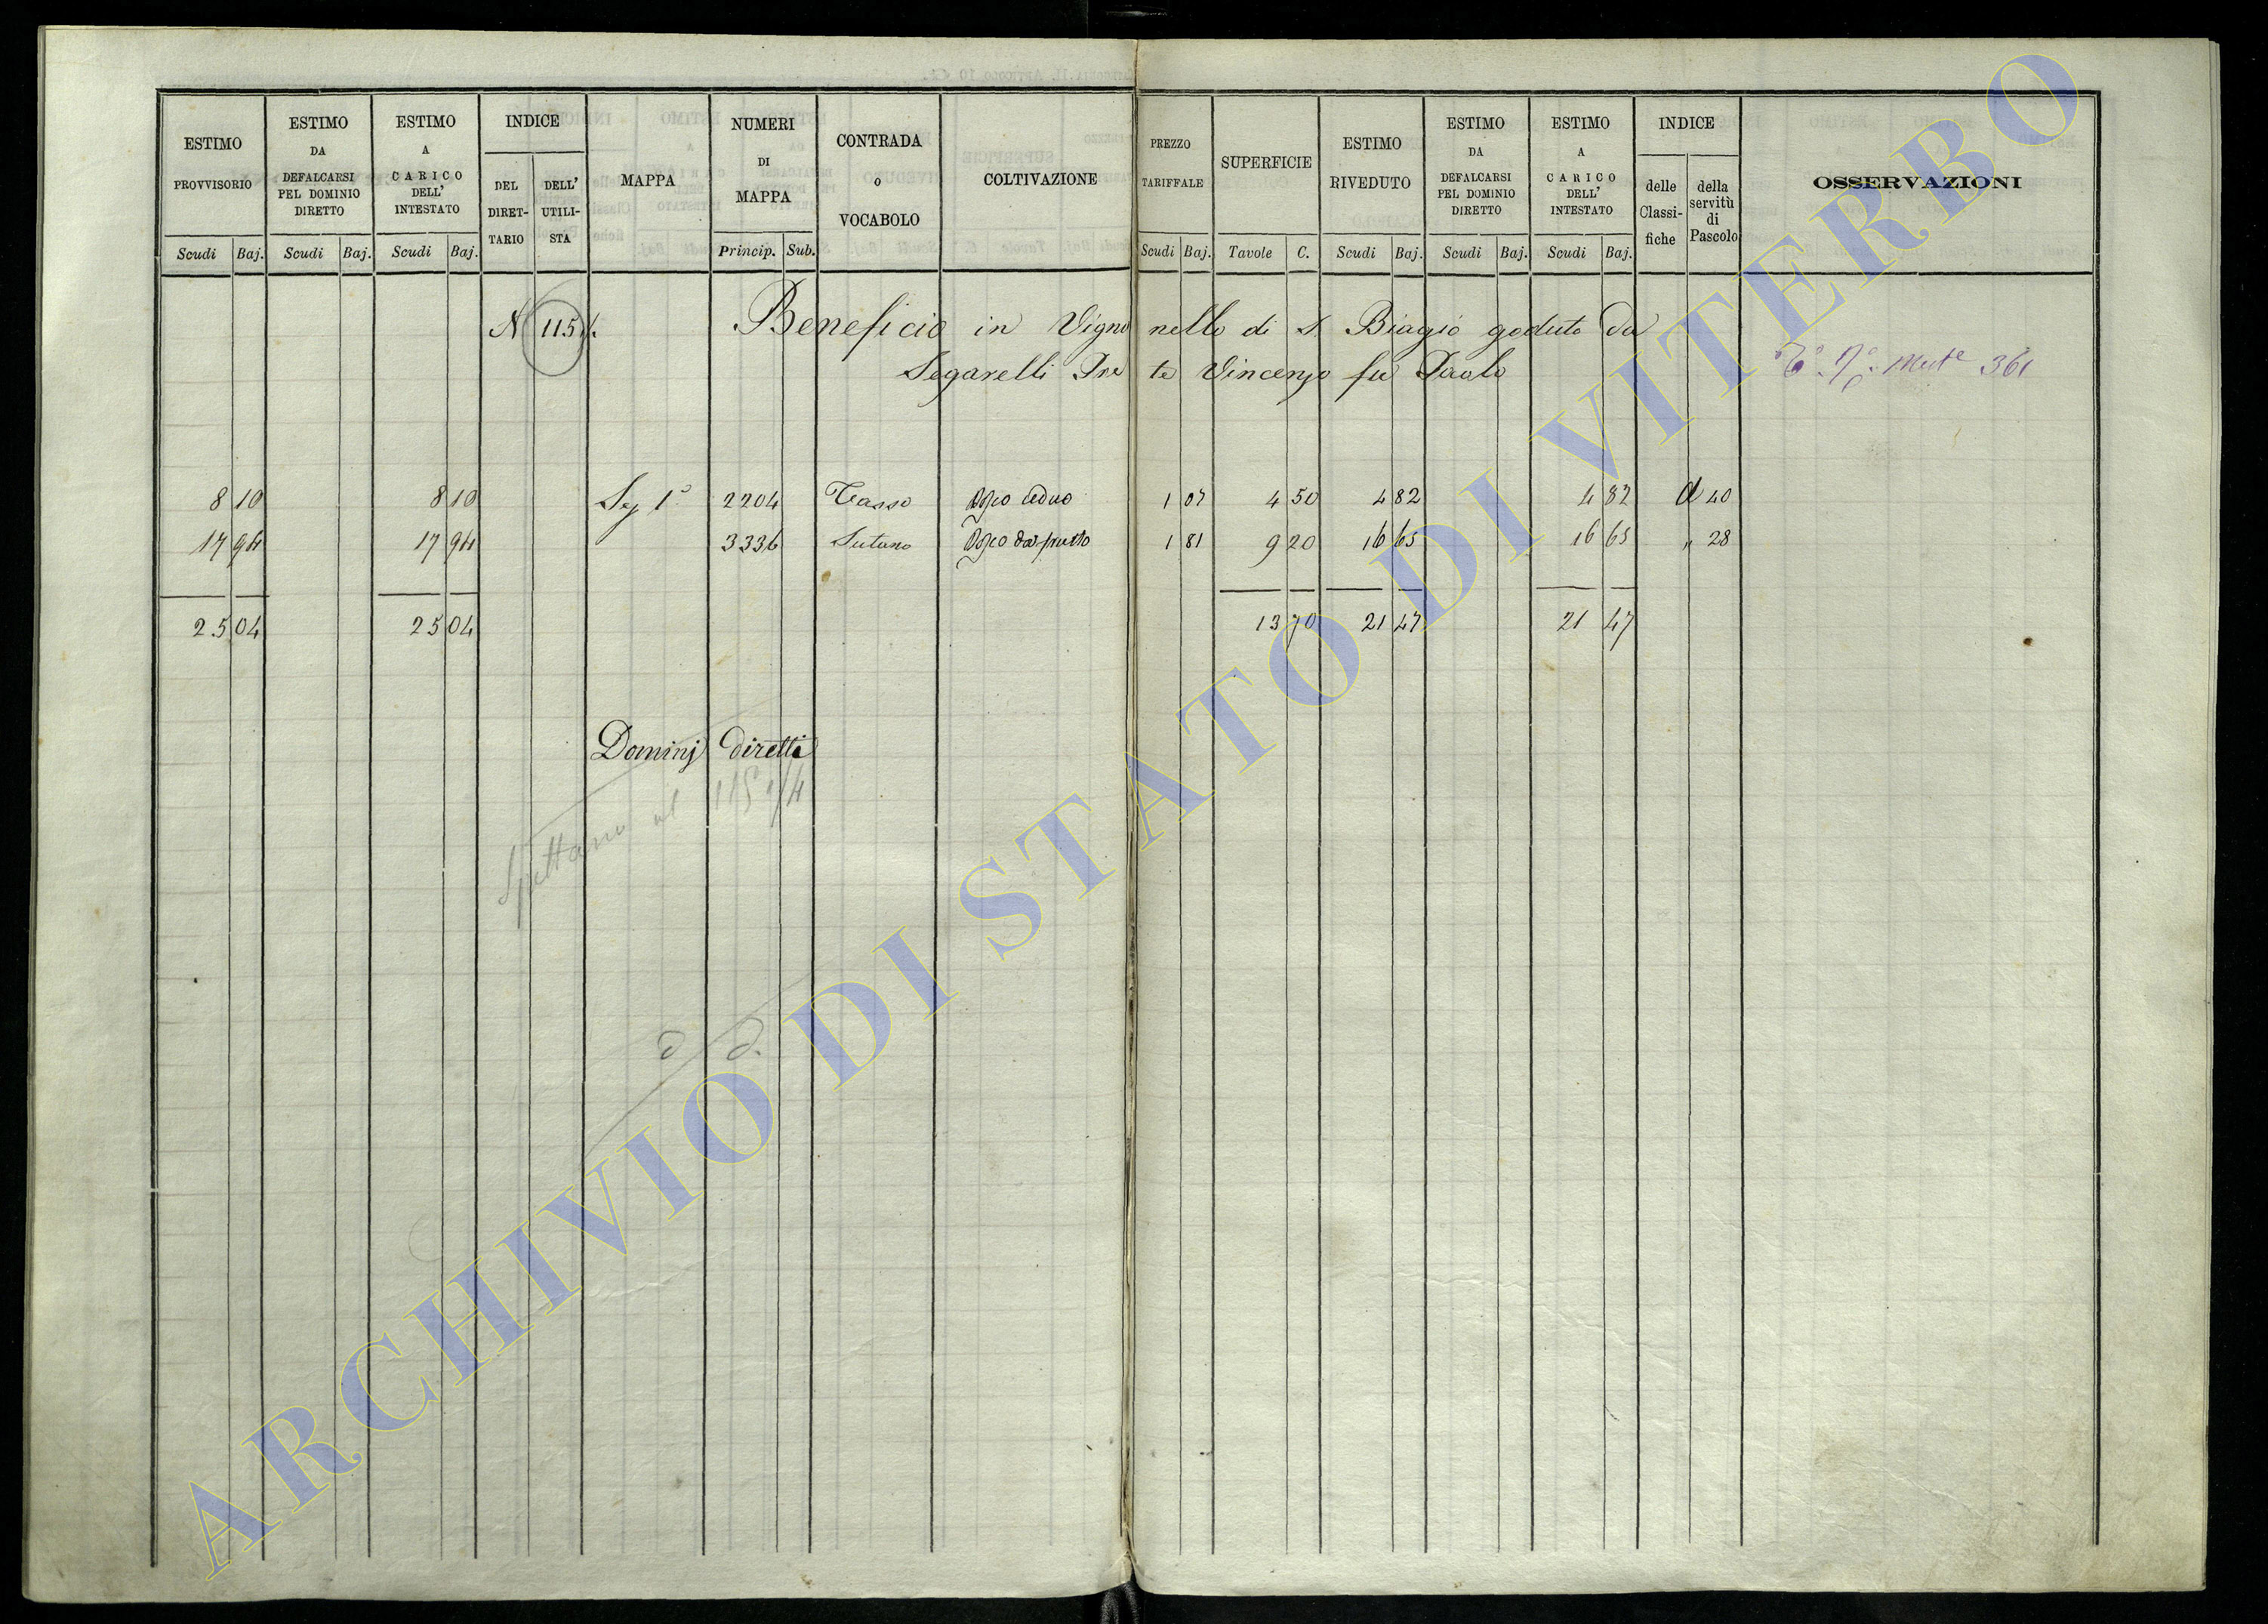 ESTIMO PROVVISORIO
Scudi Baj.
ESTIMO DA DEFALCARSI PEL DOMINIO DIRETTO
Scudi Baj.
ESTIMO A CARICO DELL' INTESTATO
Scudi Baj.
INDICE
DEL DIRET-TARIO
DELL' UTILI-STA
MAPPA
NUMERI DI MAPPA
Princip. Sub.
CONTRADA o VOCABOLO
COLTIVAZIONE
PREZZO TARIFFALE
Scudi Baj.
SUPERFICIE
Tavole C.
ESTIMO RIVEDUTO
Scudi Baj.
ESTIMO DA DEFALCARSI PEL DOMINIO DIRETTO
Scudi Baj.
ESTIMO A CARICO DELL' INTESTATO
Scudi Baj.
INDICE
delle Classi-fiche
della servitù di Pascolo
OSSERVAZIONI
N 115 Beneficio in Vignanello di S. Biagio goduto da
Segarelli Prete Vincenzo fu Paolo
361
8 10 8 10 Sez 1ª 2204 Tasso ceduo 1 07 4 50 4 82 4 82 d 40
17 94 17 94 3336 Sutano da frutto 1 81 9 20 16 65 16 65 " 28
25 04 25 04 13 70 21 47 21 47
Dominj diretti
Spettano al 115 1/4
d d.
ARCHIVIO DI STATO DI VITERBO